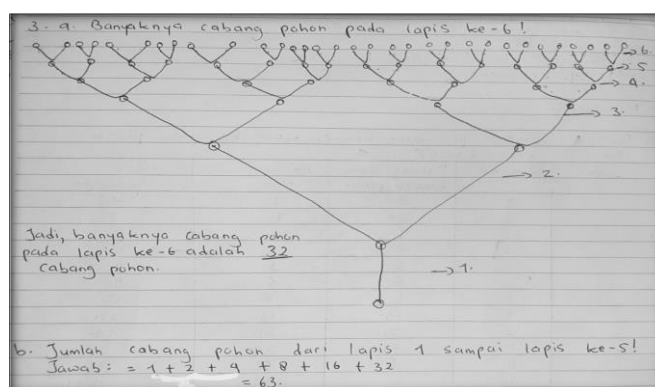 3. a. Banyaknya cabang pohon pada lapis ke-6!
6.
5
4
3.
2.
1.
Jadi, banyaknya cabang pohon
pada lapis ke-6 adalah 32
cabang pohon.
b. Jumlah cabang pohon dari lapis 1 sampai lapis ke-5!
Jawab: = 1 + 2 + 4 + 8 + 16 + 32
= 63.